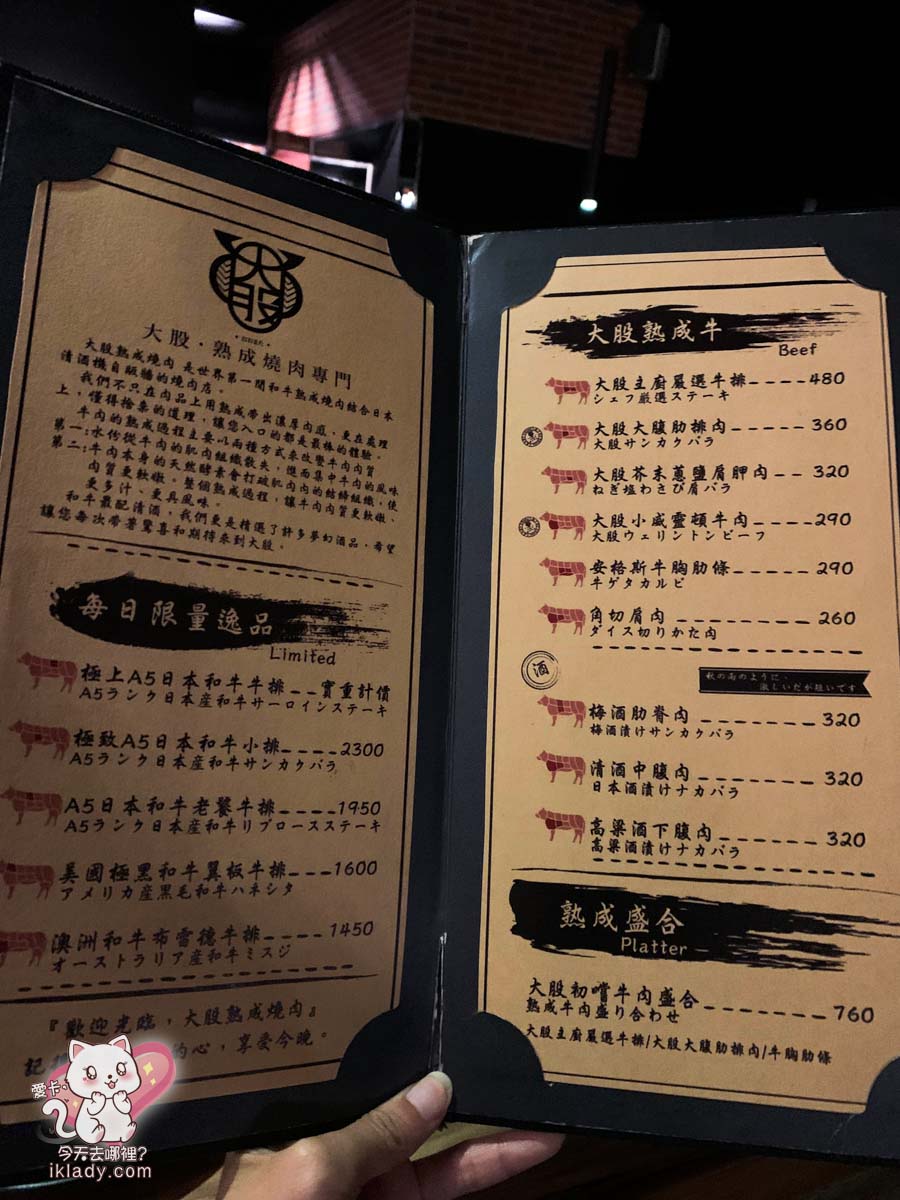 大股
大股·熟成燒肉專門
大股熟成燒肉 是世界第一間和牛熟成燒肉結合日本
清酒機自販機的燒肉店。
我們不只在肉品上用熟成帶出濃厚肉感,更在處理
上,懂得捨棄的道理,讓您入口的都是最棒的體驗。
牛肉的熟成過程主要以兩種方式來改變牛肉肉質
第一:水份從牛肉的肌肉組織散失,進而集中牛肉的風味
第二:牛肉本身的天然酵素會打破肌肉內的結締組織,使
肉質更軟嫩。整個熟成過程,讓牛肉肉質更軟嫩、
更多汁、更具風味。
和牛最配清酒,我們更是精選了許多夢幻酒品,希望
讓您每次帶著驚喜和期待來到大股。
每日限量逸品
Limited
極上A5日本和牛牛排__實重計價
A5ランク日本産和牛サーロインステーキ
極致A5日本和牛小排____2300
A5ランク日本産和牛サンカクバラ
A5日本和牛老饕牛排____1950
A5ランク日本産和牛リブロースステーキ
美國極黑和牛翼板牛排___1600
アメリカ産黒毛和牛ハネシタ
澳洲和牛布雪德牛排____1450
オーストラリア産和牛ミスジ
『歡迎光臨,大股熟成燒肉』
記 的心,享受今晚。
大股熟成牛
Beef
大股主廚嚴選牛排____480
シェフ厳選ステーキ
大股大腹肋排肉_____360
大股サンカクバラ
大股芥末蔥鹽肩胛肉__320
ねぎ塩わさび肩バラ
大股小威靈頓牛肉____290
大股ウェリントンビーフ
安格斯牛胸肋條_____290
牛ゲタカルビ
角切肩肉________260
ダイス切りかた肉
酒
秋の雨のように、
激しいだが短いです
梅酒肋脊肉_______320
梅酒漬けサンカクバラ
清酒中腹肉_______320
日本酒漬けナカバラ
高粱酒下腹肉______320
高粱酒漬けナカバラ
熟成盛合
Platter
大股初嚐牛肉盛合_______760
熟成牛肉盛り合わせ
大股主廚嚴選牛排/大股大腹肋排肉/牛胸肋條
愛卡
今天去哪裡?
iklady.com